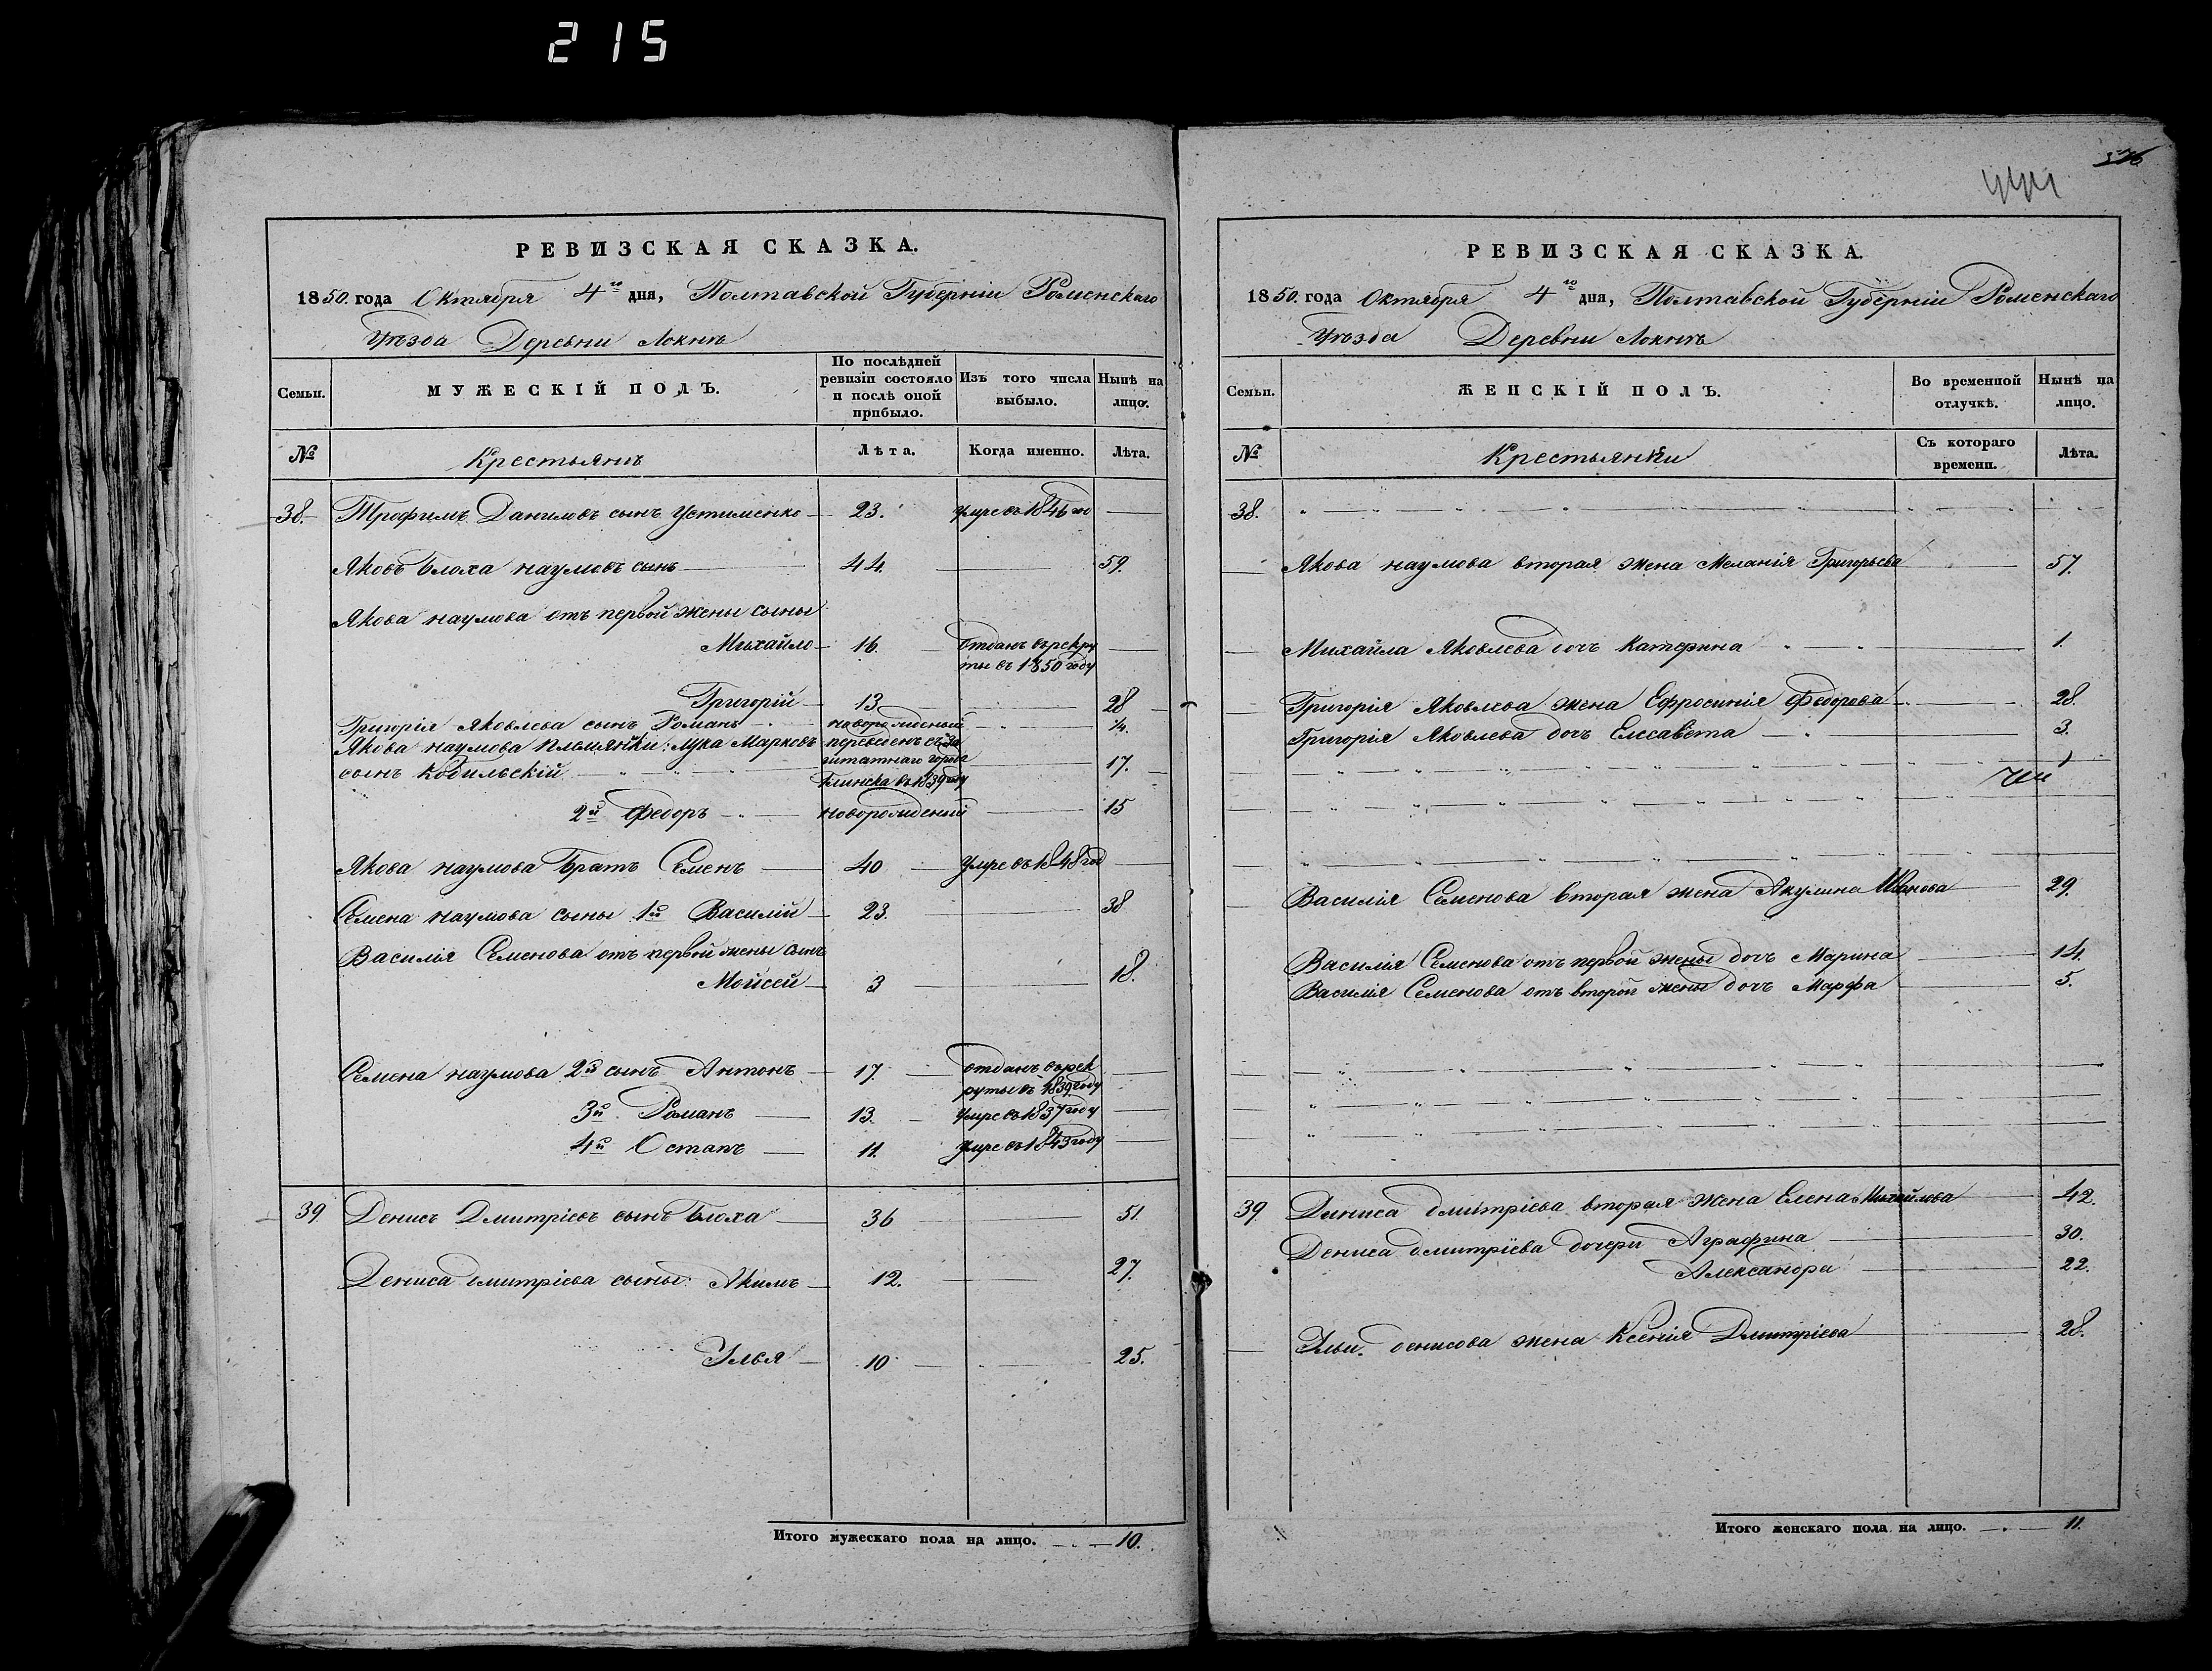 215
РЕВИЗСКАЯ СКАЗКА.
1850. года Октября 4го дня, Полтавской Губерніи Роменскаго
Уѣзда Деревни Локнѣ
Семьи.
МУЖЕСКІЙ ПОЛЪ.
По послѣдней ревизіи состояло и послѣ оной прибыло.
Изъ того числа выбыло.
Нынѣ на лицо.
№
Крестьянъ
Лѣта.
Когда именно.
Лѣта.
38. Трофимъ Даниловъ сынъ Устименко 23. умре въ 1846 го
Яковъ Блоха наумовъ сынъ 44. 59.
Якова наумова отъ первой жены сыны
Михайло 16. отданъ въ рекру
ты въ 1850 году
Григорій 13 28
Григорія Яковлева сынъ Романъ новорожденный 1/4.
Якова наумова племянѣки: Лука Марковъ переведенъ съ За
сынъ Кобильскій штатнаго города 17.
Глинска въ 1839 году
2й Федоръ новорожденный 15
Якова наумова братъ Семенъ 40 умре въ 1848 год
Семена наумова сыны 1й Василій 23. 38
Василія Семенова отъ первой жены сынъ
Мойсей 3 18.
Семена наумова 2й сынъ Антонъ 17. отданъ въ рек
руты въ 1839 году
3й Романъ 13. умре въ 1837 году
4й Остапъ 11. умре въ 1843 году
39. Денисъ Дмитріевъ сынъ Блоха 36 51.
Дениса дмитріева сыны: Акимъ 12. 27.
Илья 10 25.
Итого мужескаго пола на лицо. 10.
РЕВИЗСКАЯ СКАЗКА.
1850. года Октября 4го дня, Полтавской Губерніи Роменскаго
Уѣзда Деревни Локнѣ
Семьи.
ЖЕНСКІЙ ПОЛЪ.
Во временной отлучкѣ.
Нынѣ на лицо.
№
Крестьянки
Съ котораго времени.
Лѣта.
38.
Якова наумова вторая жена Меланія Григорьева 57.
Михайла Яковлева дочъ Катерина 1.
Григорія Яковлева жена Ефросинія Федорова 28.
Григорія Яковлева дочъ Елесавета 3.
Василія Семенова вторая жена Акулина Иванова 29.
Василія Семенова отъ первой жены дочъ Марина 14.
Василія Семенова отъ второй жены дочъ Марфа 5.
39. Дениса дмитріева вторая жена Елена Михайлова 42.
Дениса дмитріева дочери Аграфина 30.
Александра 22.
Ильи денисова жена Ксенія Дмитріева 28.
Итого женскаго пола на лицо. 11.